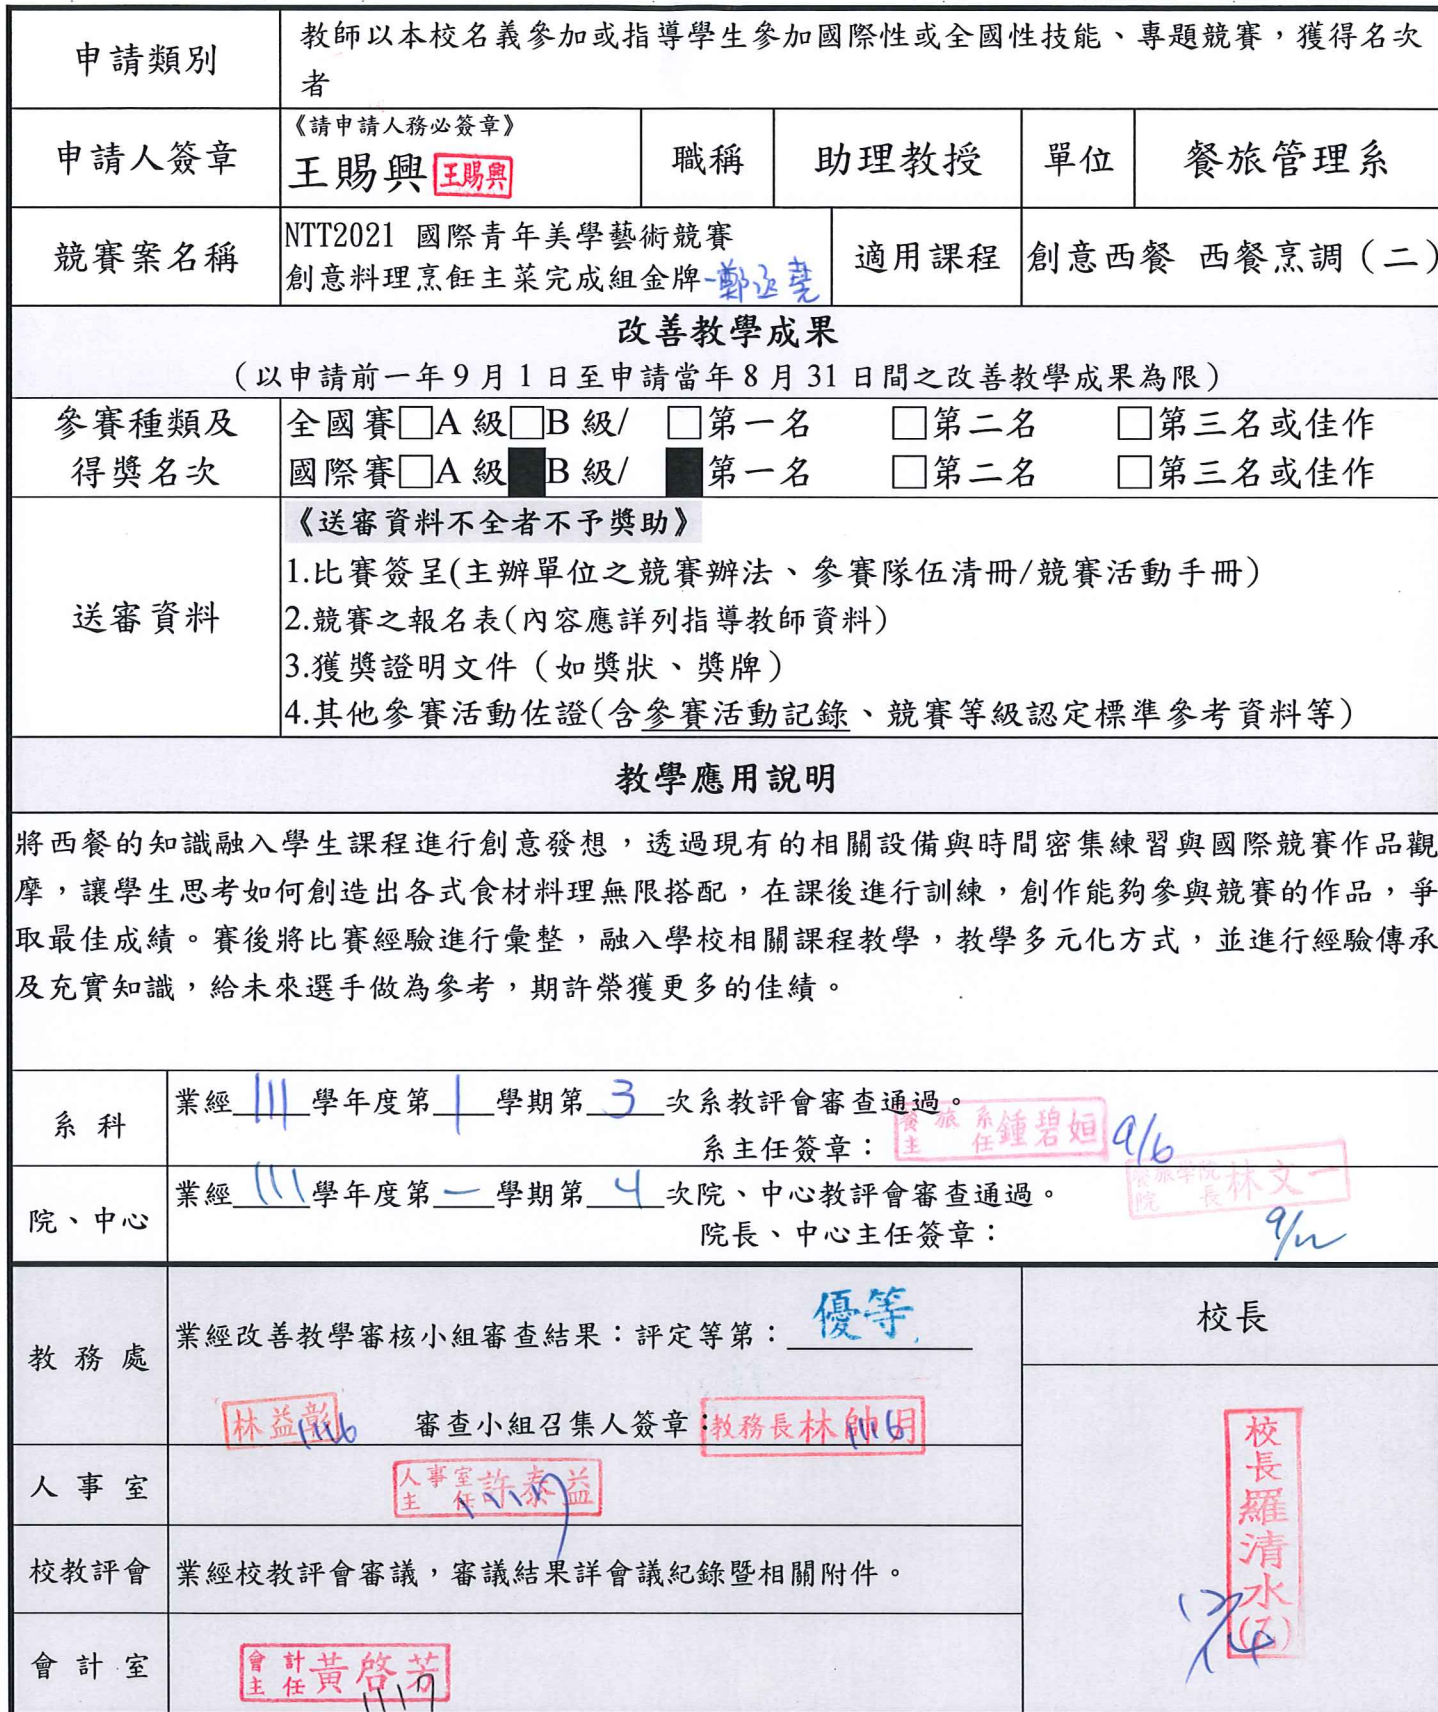 申請類別
教師以本校名義參加或指導學生參加國際性或全國性技能、專題競賽，獲得名次
者
申請人簽章
《請申請人務必簽章》
王賜興 王賜興
職稱
助理教授
單位
餐旅管理系
競賽案名稱
NTT2021 國際青年美學藝術競賽
創意料理烹飪主菜完成組金牌-鄭丞堯
適用課程
創意西餐 西餐烹調（二）
改善教學成果
（以申請前一年 9 月 1 日至申請當年 8 月 31 日間之改善教學成果為限）
參賽種類及
得獎名次
全國賽□A 級□B 級/ □第一名 □第二名 □第三名或佳作
國際賽□A 級■B 級/ ■第一名 □第二名 □第三名或佳作
送審資料
《送審資料不全者不予獎助》
1.比賽簽呈(主辦單位之競賽辦法、參賽隊伍清冊/競賽活動手冊)
2.競賽之報名表(內容應詳列指導教師資料)
3.獲獎證明文件（如獎狀、獎牌）
4.其他參賽活動佐證(含參賽活動記錄、競賽等級認定標準參考資料等)
教學應用說明
將西餐的知識融入學生課程進行創意發想，透過現有的相關設備與時間密集練習與國際競賽作品觀
摩，讓學生思考如何創造出各式食材料理無限搭配，在課後進行訓練，創作能夠參與競賽的作品，爭
取最佳成績。賽後將比賽經驗進行彙整，融入學校相關課程教學，教學多元化方式，並進行經驗傳承
及充實知識，給未來選手做為參考，期許榮獲更多的佳績。
系科
業經 111 學年度第 1 學期第 3 次系教評會審查通過。
系主任簽章： 餐旅系主任鍾碧姮 9/6
院、中心
業經 111 學年度第 一 學期第 4 次院、中心教評會審查通過。
院長、中心主任簽章： 餐旅學院院長林文一
9/12
教務處
業經改善教學審核小組審查結果：評定等第： 優等
林益彰 1116 審查小組召集人簽章： 教務長林帥月 1116
校長
校長羅清水(乙)
人事室
人事室主任許泰益 1117
校教評會
業經校教評會審議，審議結果詳會議紀錄暨相關附件。
會計室
會計主任黃啓芳 1117